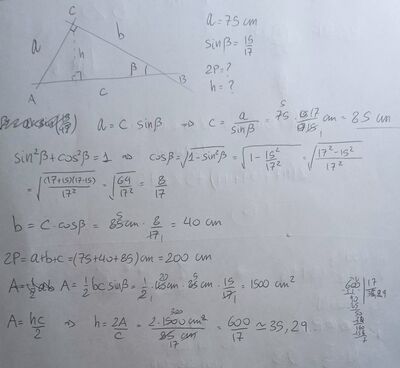 C
a
b
h
β
A
c
B
a = 75 cm
sinβ = 15/17
2P = ?
h = ?
a = c sinβ ⇒ c = a/sinβ = 75 · 17/15 cm = 85 cm
sin²β + cos²β = 1 ⇒ cosβ = √(1 - sin²β) = √(1 - 15²/17²) = √((17² - 15²)/17²)
= √((17+15)(17-15)/17²) = √(64/17²) = 8/17
b = c · cosβ = 85 cm · 8/17 = 40 cm
2P = a + b + c = (75 + 40 + 85) cm = 200 cm
A = 1/2 bc sinβ = 1/2 · 40 cm · 85 cm · 15/17 = 1500 cm²
A = hc/2 ⇒ h = 2A/c = 2 · 1500 cm²/85 cm = 600/17 ≃ 35,29
600 17
35,29